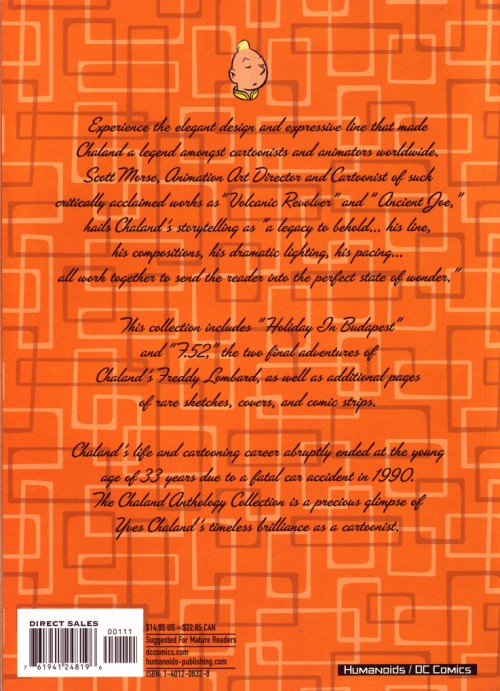 Experience the elegant design and expressive line that made
Chaland a legend amongst cartoonists and animators worldwide.
Scott Morse, Animation Art Director and Cartoonist of such
critically acclaimed works as "Volcanic Revolver" and "Ancient Joe,"
hails Chaland's storytelling as "a legacy to behold... his line,
his compositions, his dramatic lighting, his pacing...
all work together to send the reader into the perfect state of wonder."
This collection includes "Holiday In Budapest"
and "F.52," the two final adventures of
Chaland's Freddy Lombard, as well as additional pages
of rare sketches, covers, and comic strips.
Chaland's life and cartooning career abruptly ended at the young
age of 33 years due to a fatal car accident in 1990.
The Chaland Anthology Collection is a precious glimpse of
Yves Chaland's timeless brilliance as a cartoonist.
DIRECT SALES
00111
7 61941 24819 6
$14.95 US – $22.95 CAN
Suggested For Mature Readers
dccomics.com
humanoids-publishing.com
ISBN: 1-4012-0632-8
Humanoids / DC Comics